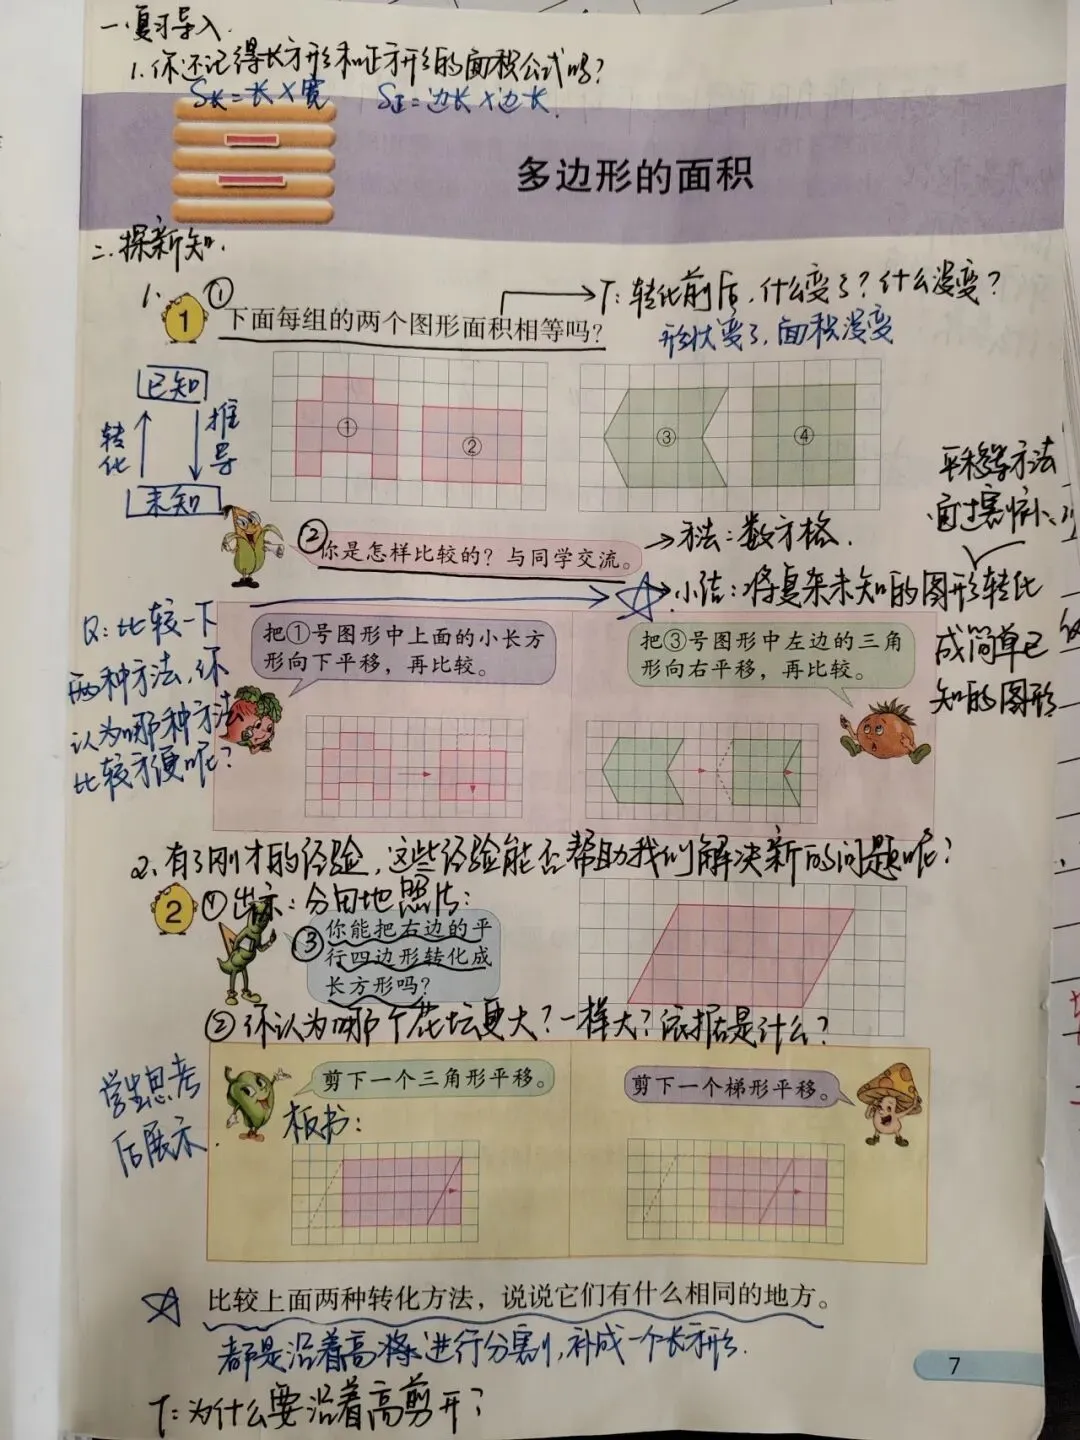 一.复习导入.
1.你还记得长方形和正方形的面积公式吗?
S长=长×宽 S正=边长×边长.
多边形的面积
二.探新知.
1.
①
T:转化前后,什么变了?什么没变?
1 下面每组的两个图形面积相等吗?
形状变了,面积没变
已知
转化
推导
未知
① ② ③ ④
平移等方法
通过割
②你是怎样比较的?与同学交流。
→方法:数方格.
☆小结:将复杂未知的图形转化
成简单已
知的图形
Q:比较一下
两种方法,你
认为哪种方法
比较方便呢?
把①号图形中上面的小长方
形向下平移,再比较。
把③号图形中左边的三角
形向右平移,再比较。
2.有了刚才的经验,这些经验能否帮助我们解决新的问题呢?
2 ①出示:分田地照片:
③你能把右边的平
行四边形转化成
长方形吗?
②你认为哪个花坛更大?一样大?依据是什么?
学生思考
后展示.
剪下一个三角形平移。
剪下一个梯形平移。
板书:
☆ 比较上面两种转化方法,说说它们有什么相同的地方。
都是沿着高将进行分割,补成一个长方形.
7
T:为什么要沿着高剪开?